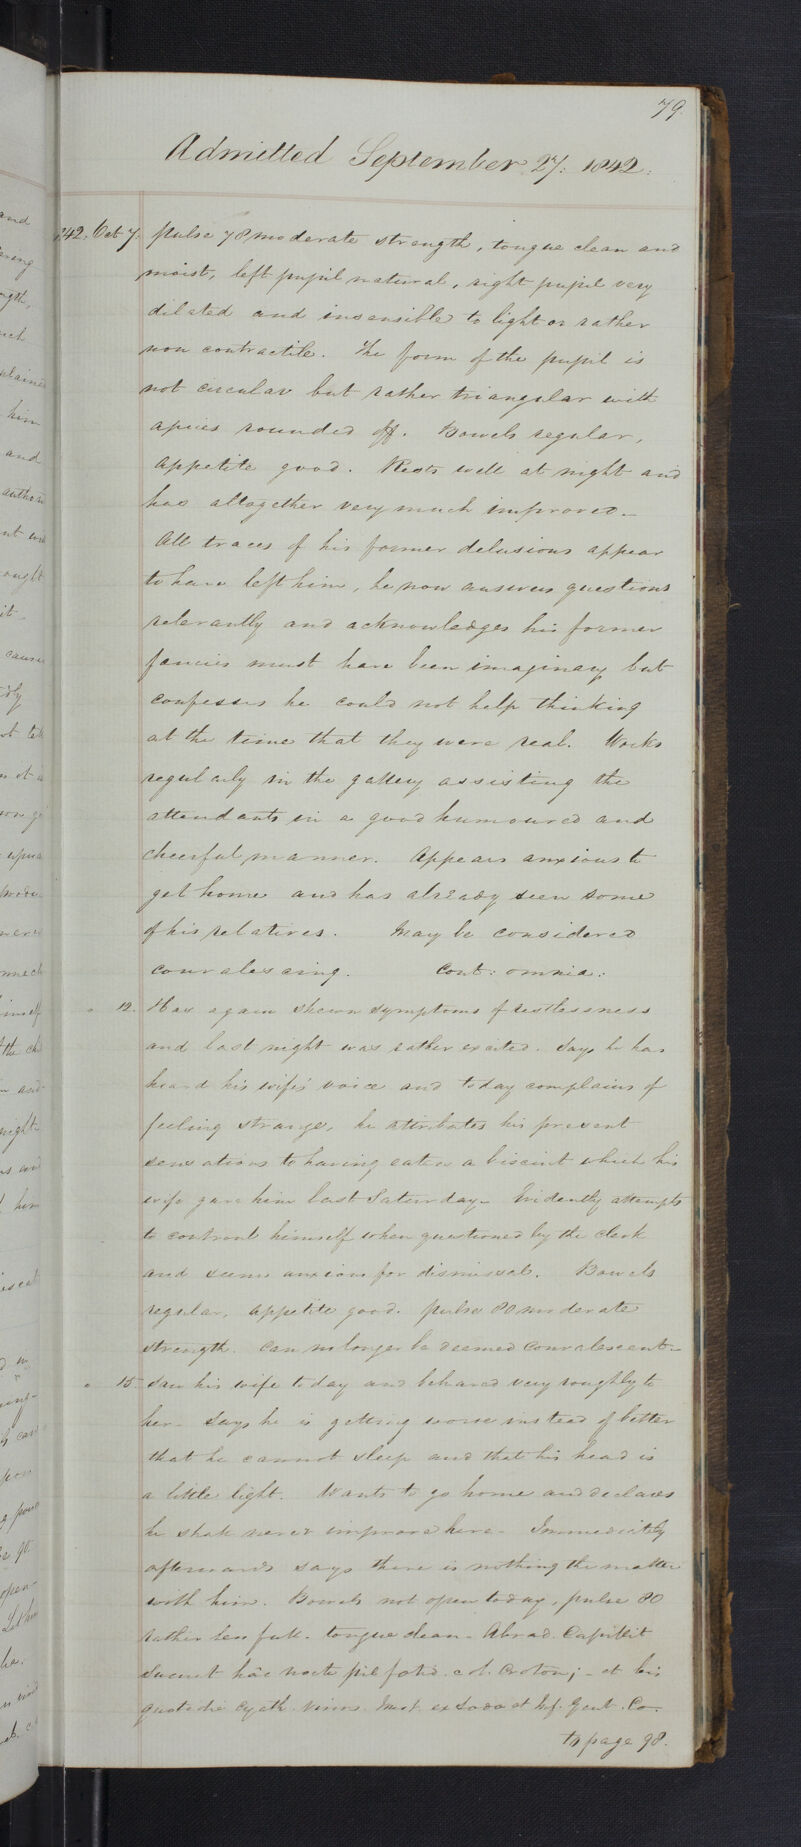 79.
Admitted September 27: 1842:
1842. Oct 7. pulse 78 moderate strength, tongue clean and
moist, left pupil natural, right pupil very
dilated and insensible to light or rather
non contractile. The form of the pupil is
not circular but rather triangular with
apices rounded off. Bowels regular,
appetite good. Rests well at night and
has altogether very much improved.
All traces of his former delusions appear
to have left him, he now answers questions
relevantly and acknowledges his former
fancies must have been imaginary but
confesses he could not help thinking
at the time that they were real. Works
regularly in the gallery assisting the
attendants in a good humoured and
cheerful manner. Appears anxious to
get home and has already seen some
of his relatives. May be considered
convalescing. Cont: omnia:
" 12. Has again shewn symptoms of restlessness
and last night was rather excited. Says he has
heard his wife's voice and today complains of
feeling strange, he attributes his present
sensations to having eaten a biscuit which his
wife gave him last Saturday. Evidently attempts
to controul himself when questioned by the clerk
and seems anxious for dismissal. Bowels
regular, appetite good. pulse 80 moderate
strength. Can no longer be deemed convalescent.
" 15. Saw his wife today and behaved very roughly to
her. Says he is getting worse instead of better
that he cannot sleep and that his head is
a little light. Wants to go home and declares
he shall never improve here. Immediately
afterwards says there is nothing the matter
with him. Bowels not open today, pulse 80
rather less full. tongue clean. Abrad. Capillit
Sumet hâc nocte pil foetid. c ol. Croton; - et bis
quotidie Cyath. vinos. Mist. ex Soda et Inf. Gent. Co.
to page 98.